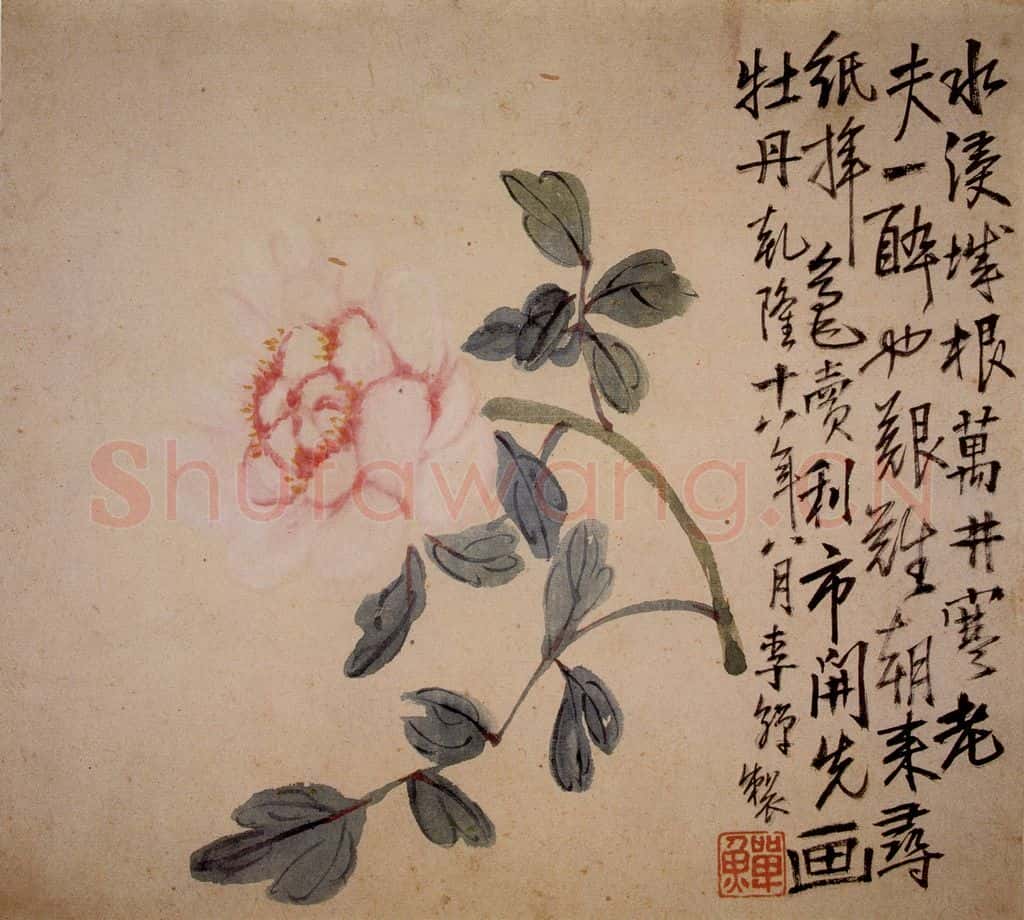 水浸城根萬井寒老
夫一醉也艱難朝來尋
紙揮毫賣利市開先画
牡丹乾隆十八年八月李觶製
鱓
Shufawang.CN